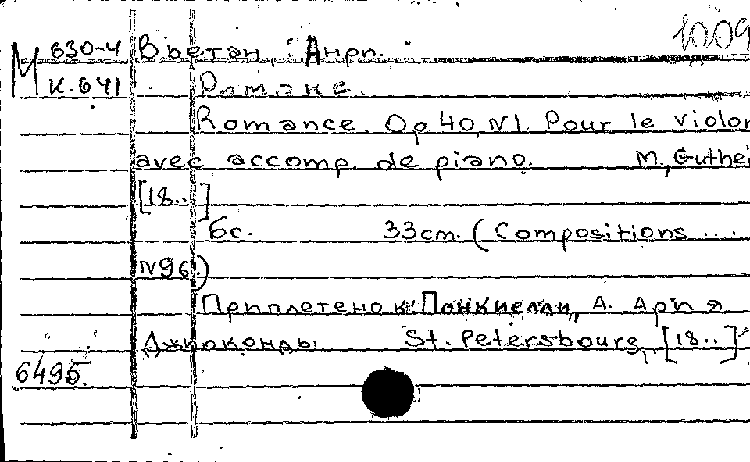 1009
М 630-4 Вьетан, Анри.
К. 641 Романс.
Romance. Op 40, N1. Pour le violon
avec accomp. de piano. M., Guthei
[18..]
6с. 33cm. (Compositions ....
N96.)
Приплетено к: Понкиелли, А. Ария
Джиоконды. St. Petersbourg, [18..]
6495.